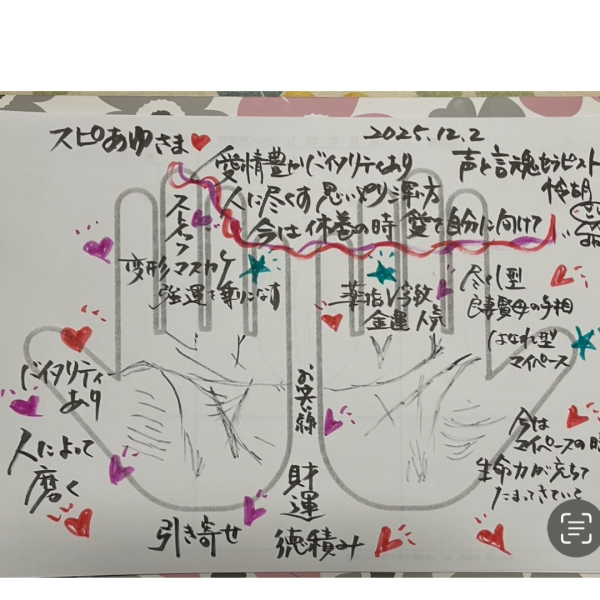 スピあゆさま
2025.12.2
愛情豊かバイタリティあり
声と言魂セラピスト
人に尽くす 思いやり深い方
今は休養の時 全て自分に向けて
ストップ
変形マスカケ
強運を乗りこなす
薬指V字紋
金運 人気
尽くし型
良妻賢母の手相
はなれ型
マイペース
バイタリティー
あり
人によって
磨く
お笑い線
財運
引き寄せ
徳積み
今は
マイペースの時
生命力が充ちて
たまってきている